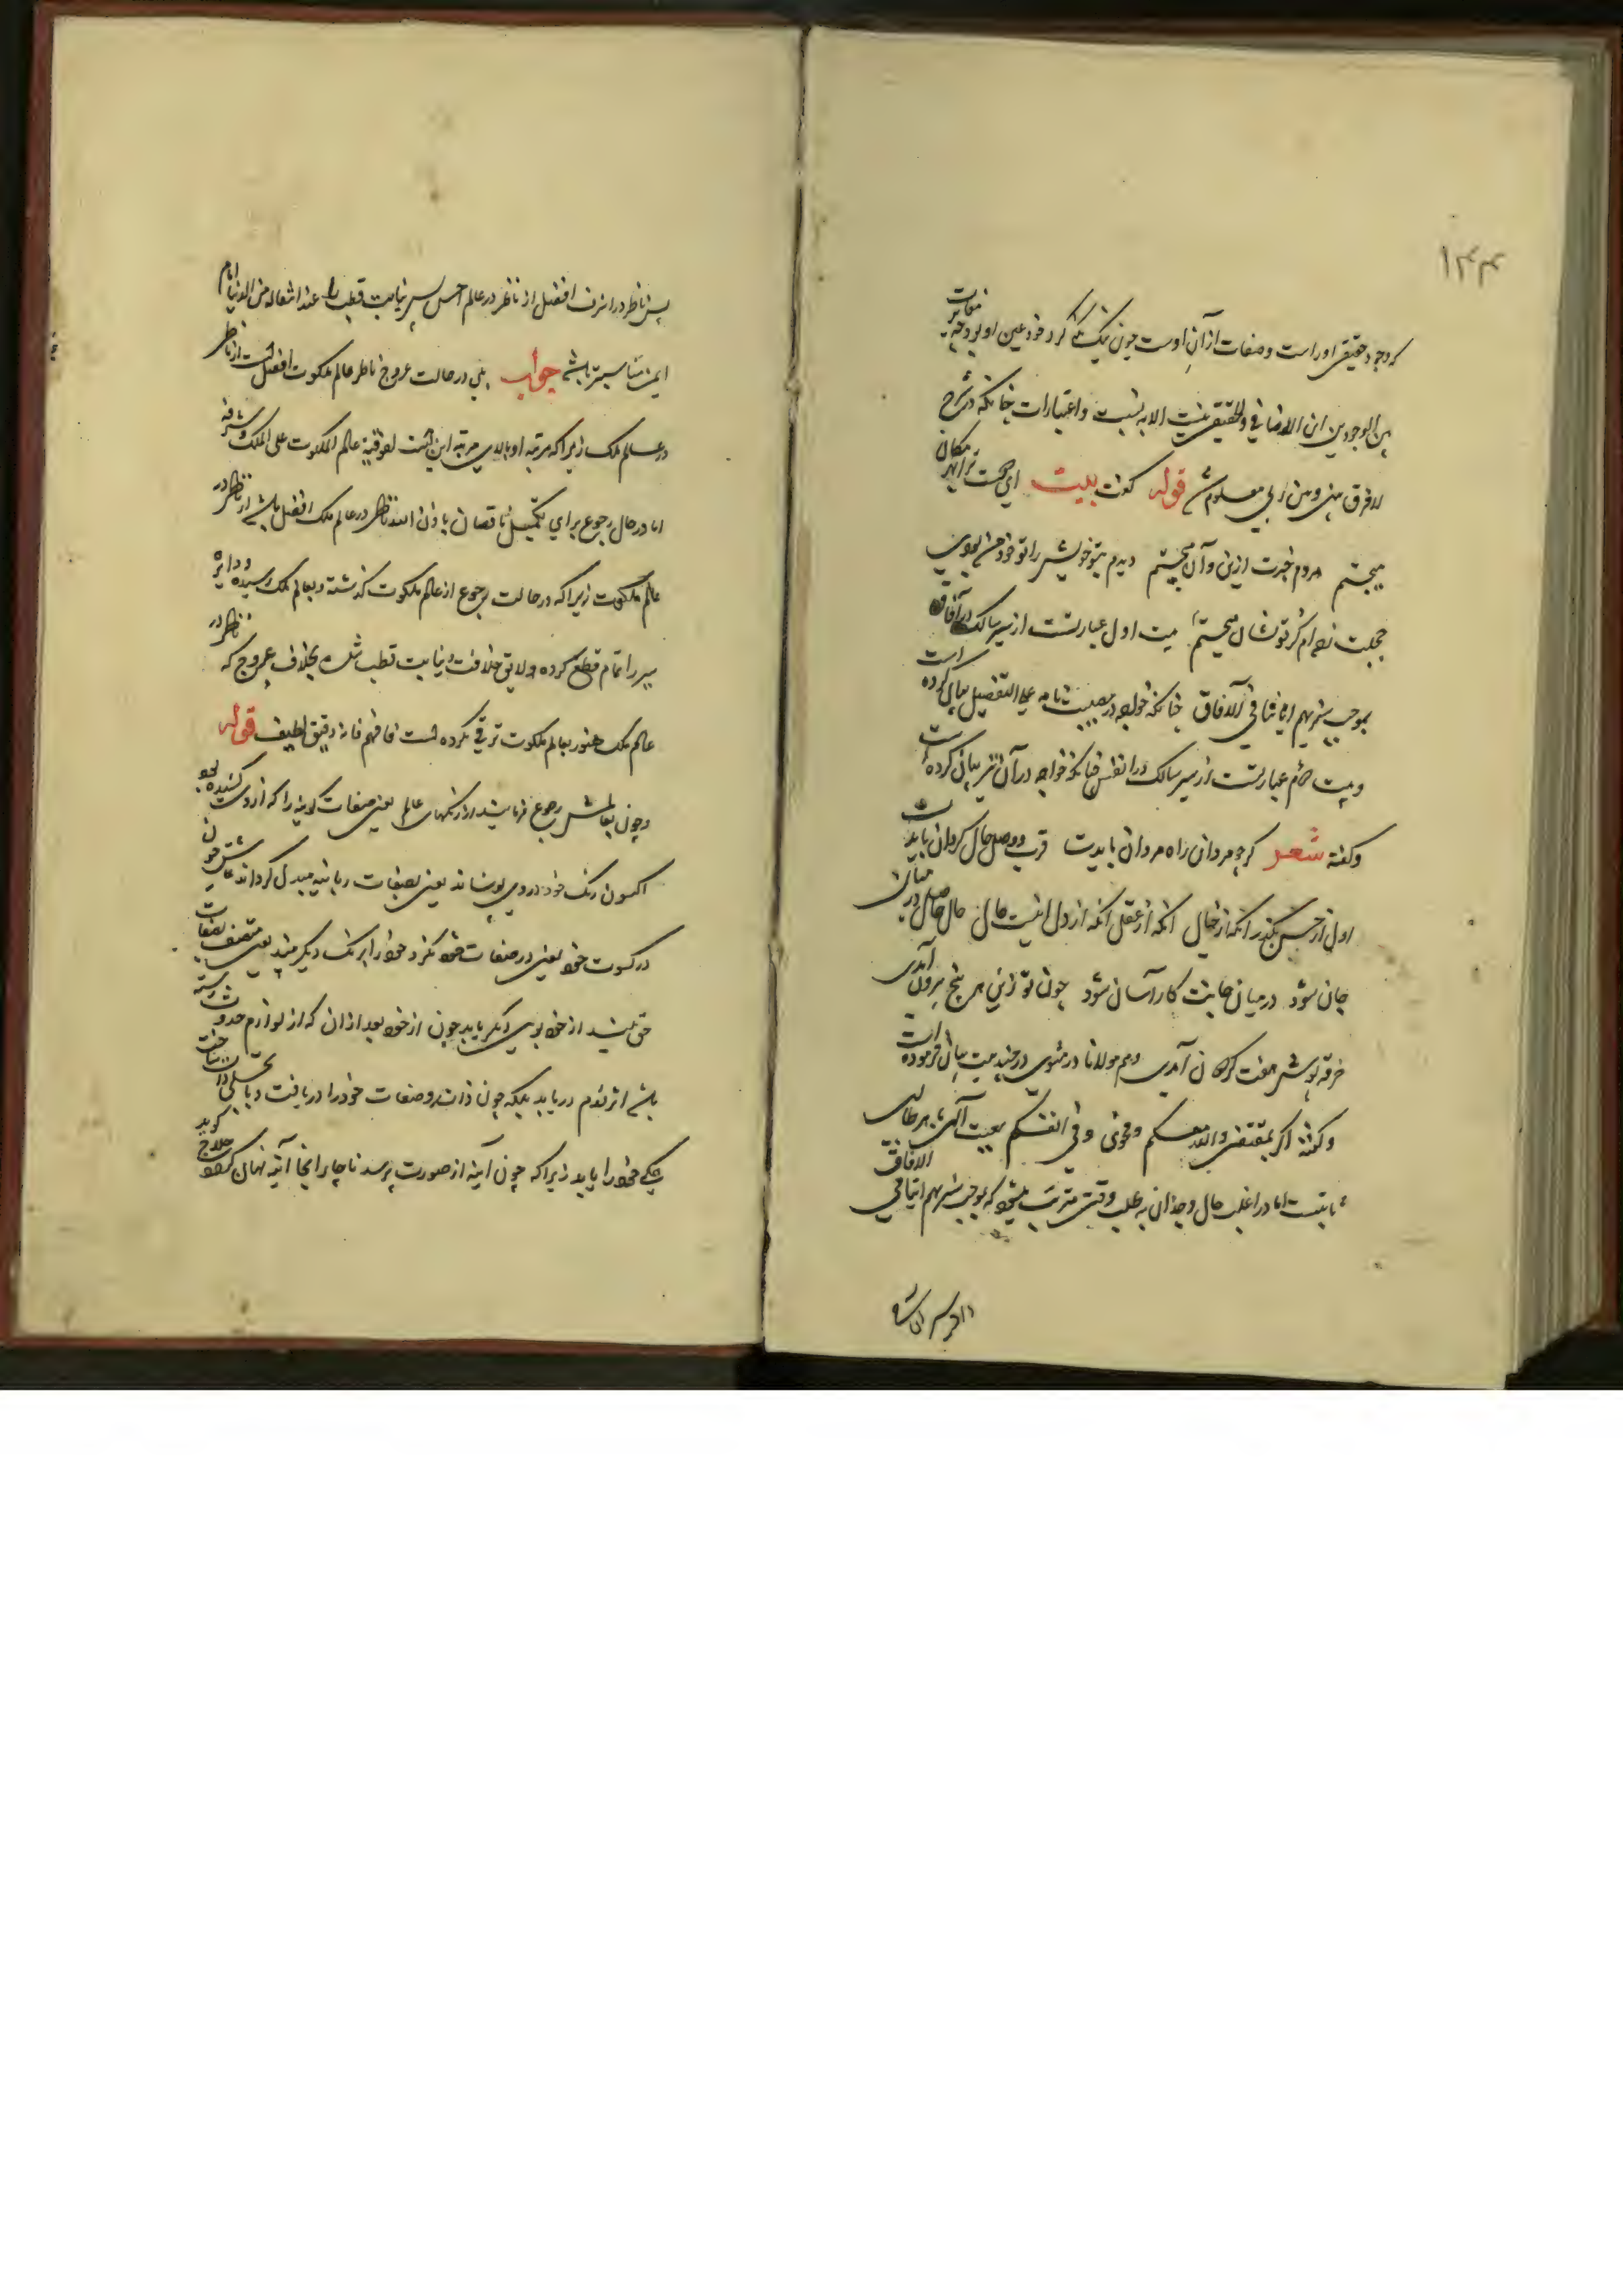 ۱۴۴
که وجود حقیقی او راست و صفات از آنِ اوست چون نیک نظر کرد خود عین او بود مغایرت
بین الوجودین ان الاضافی والحقیقی نیست الا به نسبت و اعتبارات چنانکه در شرح
لا فرق بینی و بین ربی معلوم شد قوله گفت بیت ای دوست ترا بهر مکان
میجستم هر دم خبرت ازین و آن میجستم دیدم بتو خویش را تو خود من بودی
خجلت زده ام کز تو نشان میجستم بیت اول عبارتست از سیر سالک در آفاق
بموجب سنریهم ایاتنا فی الآفاق چنانکه خواجه در مصیبت نامه علی التفصیل بیان کرده است
و بیت دوم عبارتست از سیر سالک در انفس چنانکه خواجه در آن نیز بیان کرده است
و گفته شعر گر چو مردان راه مردان بایدت قرب و وصل حال گردان بایدت
اول از حس بگذر انگه از خیال انگه از عقل انگه از دل اینت حال حال حاصل در میان
جان شود در میان جانت کار آسان شود چون تو زین هر پنج بیرون آمدی
خرقه پوش هفت گردون آمدی و هم مولانا در مثنوی در چند بیت بیان فرموده است
و گفته اگر بمقتضی والله معکم و فحوی و فی انفسکم معیت آلهی بهر طالب
ثابتست اما در اغلب حال وجدان به طلب وقتی مترتب میشود که بموجب سنریهم ایاتنا فی الافاق
پس ناظر در اشرف افضل از ناظر در عالم اخس پس نیابت قطب را عند انتقاله من الدنیا امام
ایمن مناسبتر باشد جواب بلی در حالت عروج ناظر عالم ملکوت افضل است از ناظر
در عالم ملک زیرا که مرتبه او بالای مرتبه این است لفوقیة عالم الملکوت علی الملک و شرفه
اما در حال رجوع برای تکمیل ناقصان باذن الله ناظر در عالم ملک افضل باشد از ناظر در
عالم ملکوت زیرا که در حالت رجوع از عالم ملکوت گذشته و بعالم ملک رسیده و دایره
سیر را تمام قطع کرده و لایق خلافت و نیابت قطب شده بخلاف عروج که ناظر در
عالم ملک هنوز بعالم ملکوت ترقی نکرده است فافهم فانه دقیق لطیف قوله
و چون بعالمش رجوع فرمایند از رنگهای عالم یعنی صفات کونیه را که از وی کشیده بود
اکنون رنگ خود در وی پوشاند یعنی بصفات ربانیه مبدل گرداند عاشق چون
در کسوت خود یعنی در صفات خود نگرد خود را برنگ دیگر بیند یعنی متصف بصفات
حق بیند از خود بوی دیگر یابد چون از خود بعد از آن که از لوازم حدوث رسته
باشد اثر قدم دریابد بلکه چون ذات و صفات خود را دریافت و با تجلی ذات ساخت
یکی خود را یابد زیرا که چون آینه از صورت پرسد ناچار اینجا آینه نهان